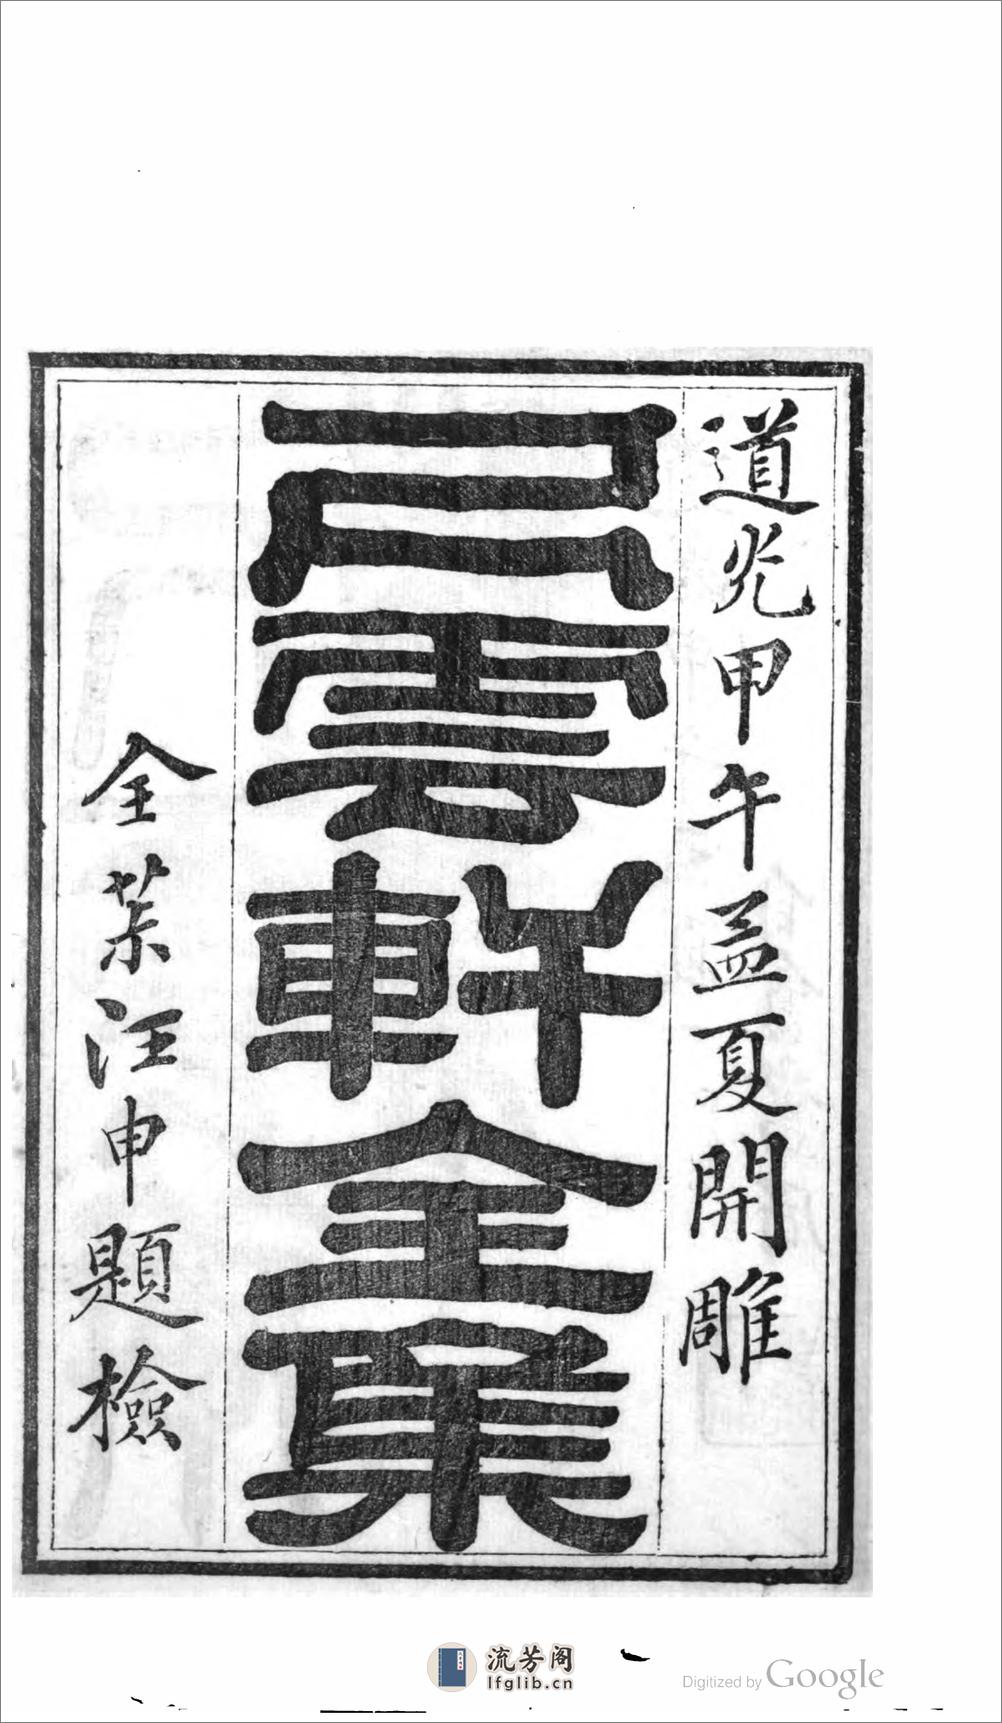 道光甲午孟夏開雕
尺雲軒全集
全茮汪申題檢
流芳阁
lfglib.cn
Digitized by Google